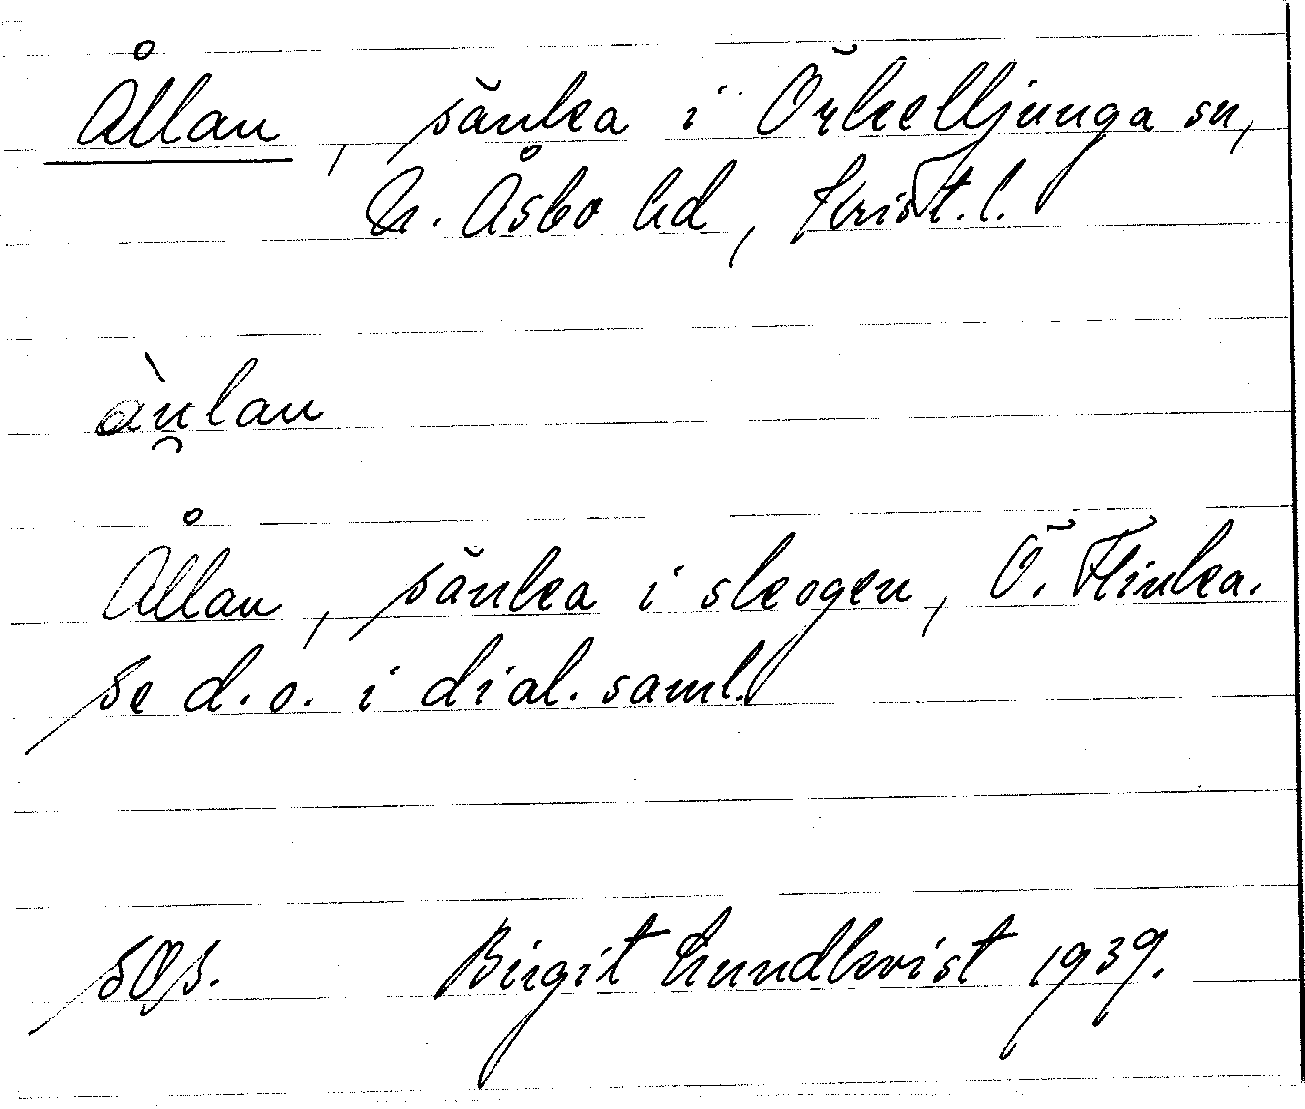 Ållan, sänka i Örkelljunga sn,
N. Åsbo hd, Krist. l.
Ållan, sänka i skogen, Ö. Flinka.
Se d.o. i dial. saml.
Birgit Lundkvist 1939.